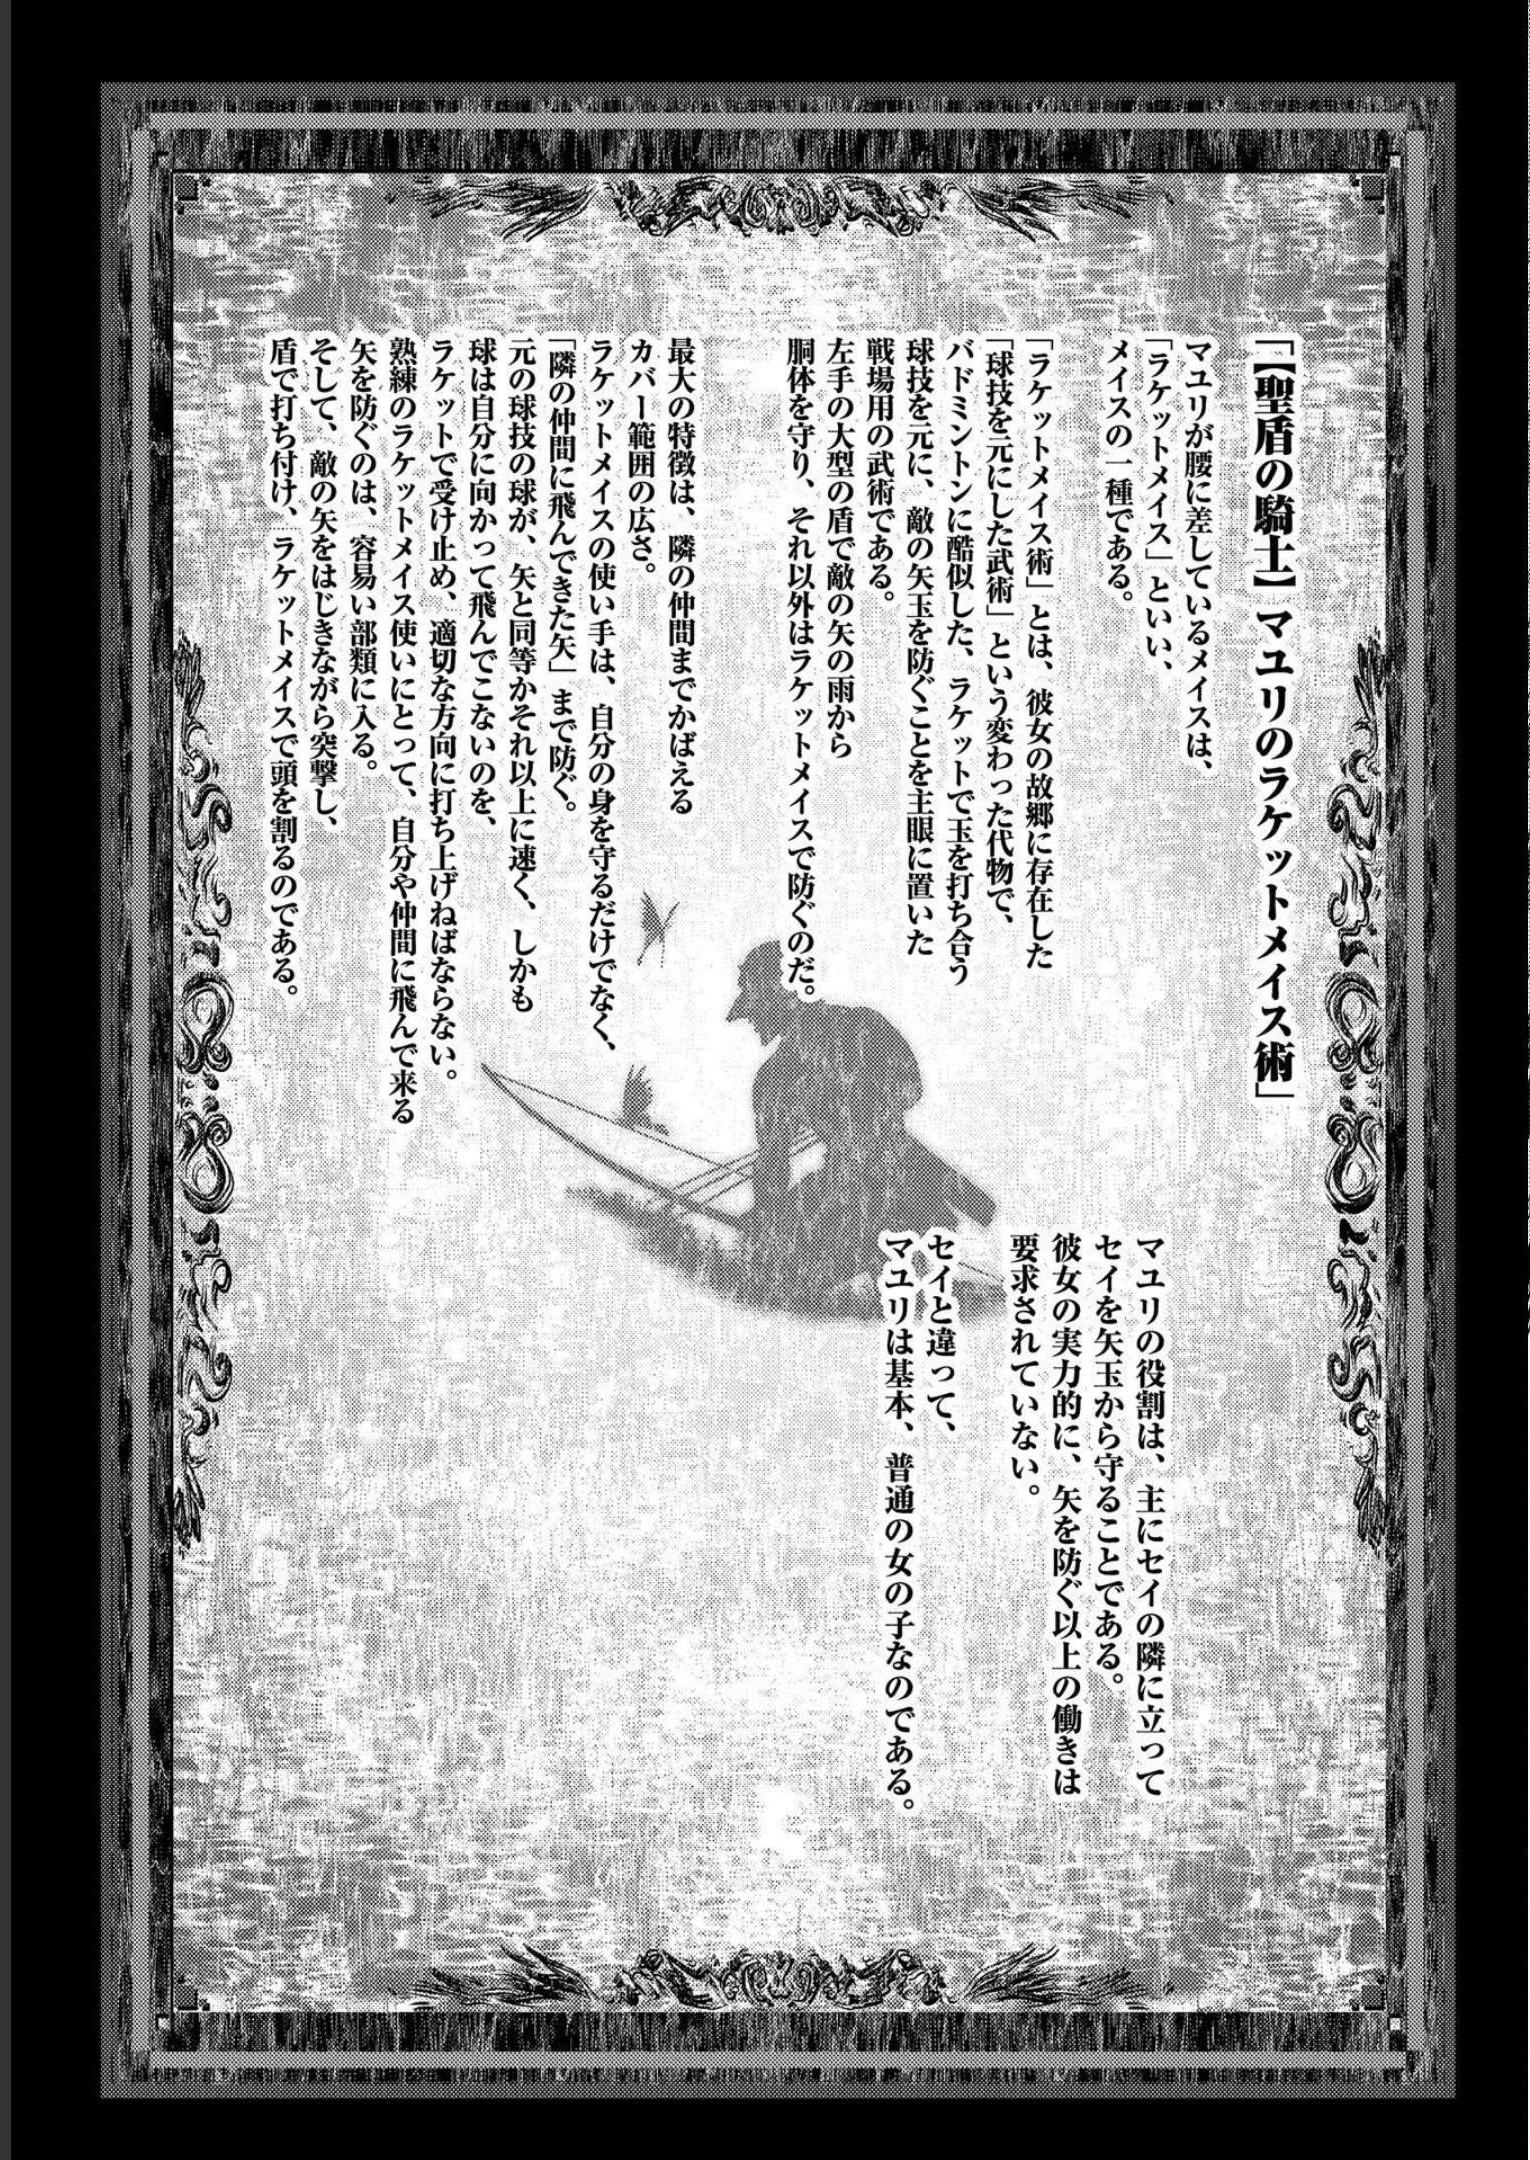 「【聖盾の騎士】マユリのラケットメイス術」
マユリが腰に差しているメイスは、
「ラケットメイス」といい、
メイスの一種である。
「ラケットメイス術」とは、彼女の故郷に存在した
「球技を元にした武術」という変わった代物で、
バドミントンに酷似した、ラケットで玉を打ち合う
球技を元に、敵の矢玉を防ぐことを主眼に置いた
戦場用の武術である。
左手の大型の盾で敵の矢の雨から
胴体を守り、それ以外はラケットメイスで防ぐのだ。
最大の特徴は、隣の仲間までかばえる
カバー範囲の広さ。
ラケットメイスの使い手は、自分の身を守るだけでなく、
「隣の仲間に飛んできた矢」まで防ぐ。
元の球技の球が、矢と同等かそれ以上に速く、しかも
球は自分に向かって飛んでこないのを、
ラケットで受け止め、適切な方向に打ち上げねばならない。
熟練のラケットメイス使いにとって、自分や仲間に飛んで来る
矢を防ぐのは、容易い部類に入る。
そして、敵の矢をはじきながら突撃し、
盾で打ち付け、ラケットメイスで頭を割るのである。
マユリの役割は、主にセイの隣に立って
セイを矢玉から守ることである。
彼女の実力的に、矢を防ぐ以上の働きは
要求されていない。
セイと違って、
マユリは基本、普通の女の子なのである。